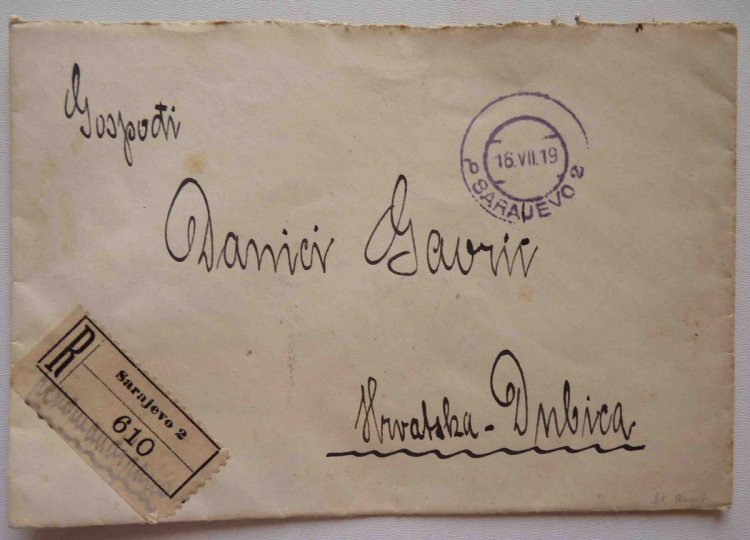 Gospođi
16.VII.19
SARAJEVO 2
Danici Gavric
R
Sarajevo 2
610
Hrvatska - Dubica